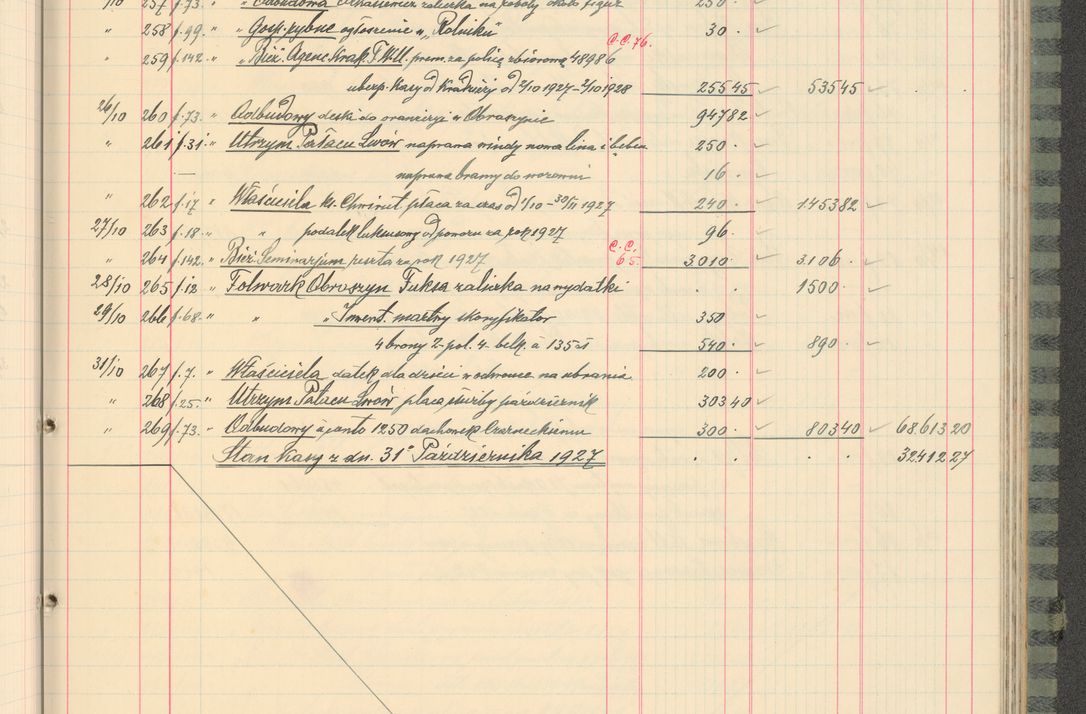 /10 257 f.73. " Odbudowa zaliczka na roboty około figur 250 ·
" 258 f.99. " " Gosp. rybne ogłoszenie w „Rolniku" 30 ·
" 259 f.142. " „ Bież. Agenc. Krak. T.W.U. prem. za polisę zbiorową 48986 C.C. 76.
ubezp. Kasy od Kradzieży od 2/10 1927 – 2/10 1928 255 45 535 45
26/10 260 f.73. " Odbudowy deski do oranżerji w Obroszynie 947 82
" 261 f.31. " Utrzym. Pałacu Lwów naprawa windy nowa lina i bęben 250 ·
— naprawa bramy do wozowni 16 ·
" 262 f.17 " Właściciela Ks. płaca za czas od 1/10 – 30/11 1927 240 · 1453 82
27/10 263 f.18. " " podatek luksusowy od powozu za rok 1927 96 ·
" 264 f.142. " Bież. Seminarjum reszta za rok 1927 C.C. 65. 3010 · 3.106 ·
28/10 265 f.12 " Folwark Obroszyn Fuksa zaliczka na wydatki · · 1500 ·
29/10 266 f.68. " " „ Inwent. martwy skaryfikator 350
4 brony 2-pol. 4-belk. à 135 zł 540 · 890 ·
31/10 267 f.7. " Właściciela datek dla dzieci na ubrania 200 ·
" 268 f.25. " Utrzym. Pałacu Lwów płaca służby październik 303 40
" 269 f.73. " Odbudowy à conto 1250 dachówek Czarneckiemu 300 · 803 40 68.613 20
Stan Kasy z dn. 31º Października 1927 · · · · 32412 27